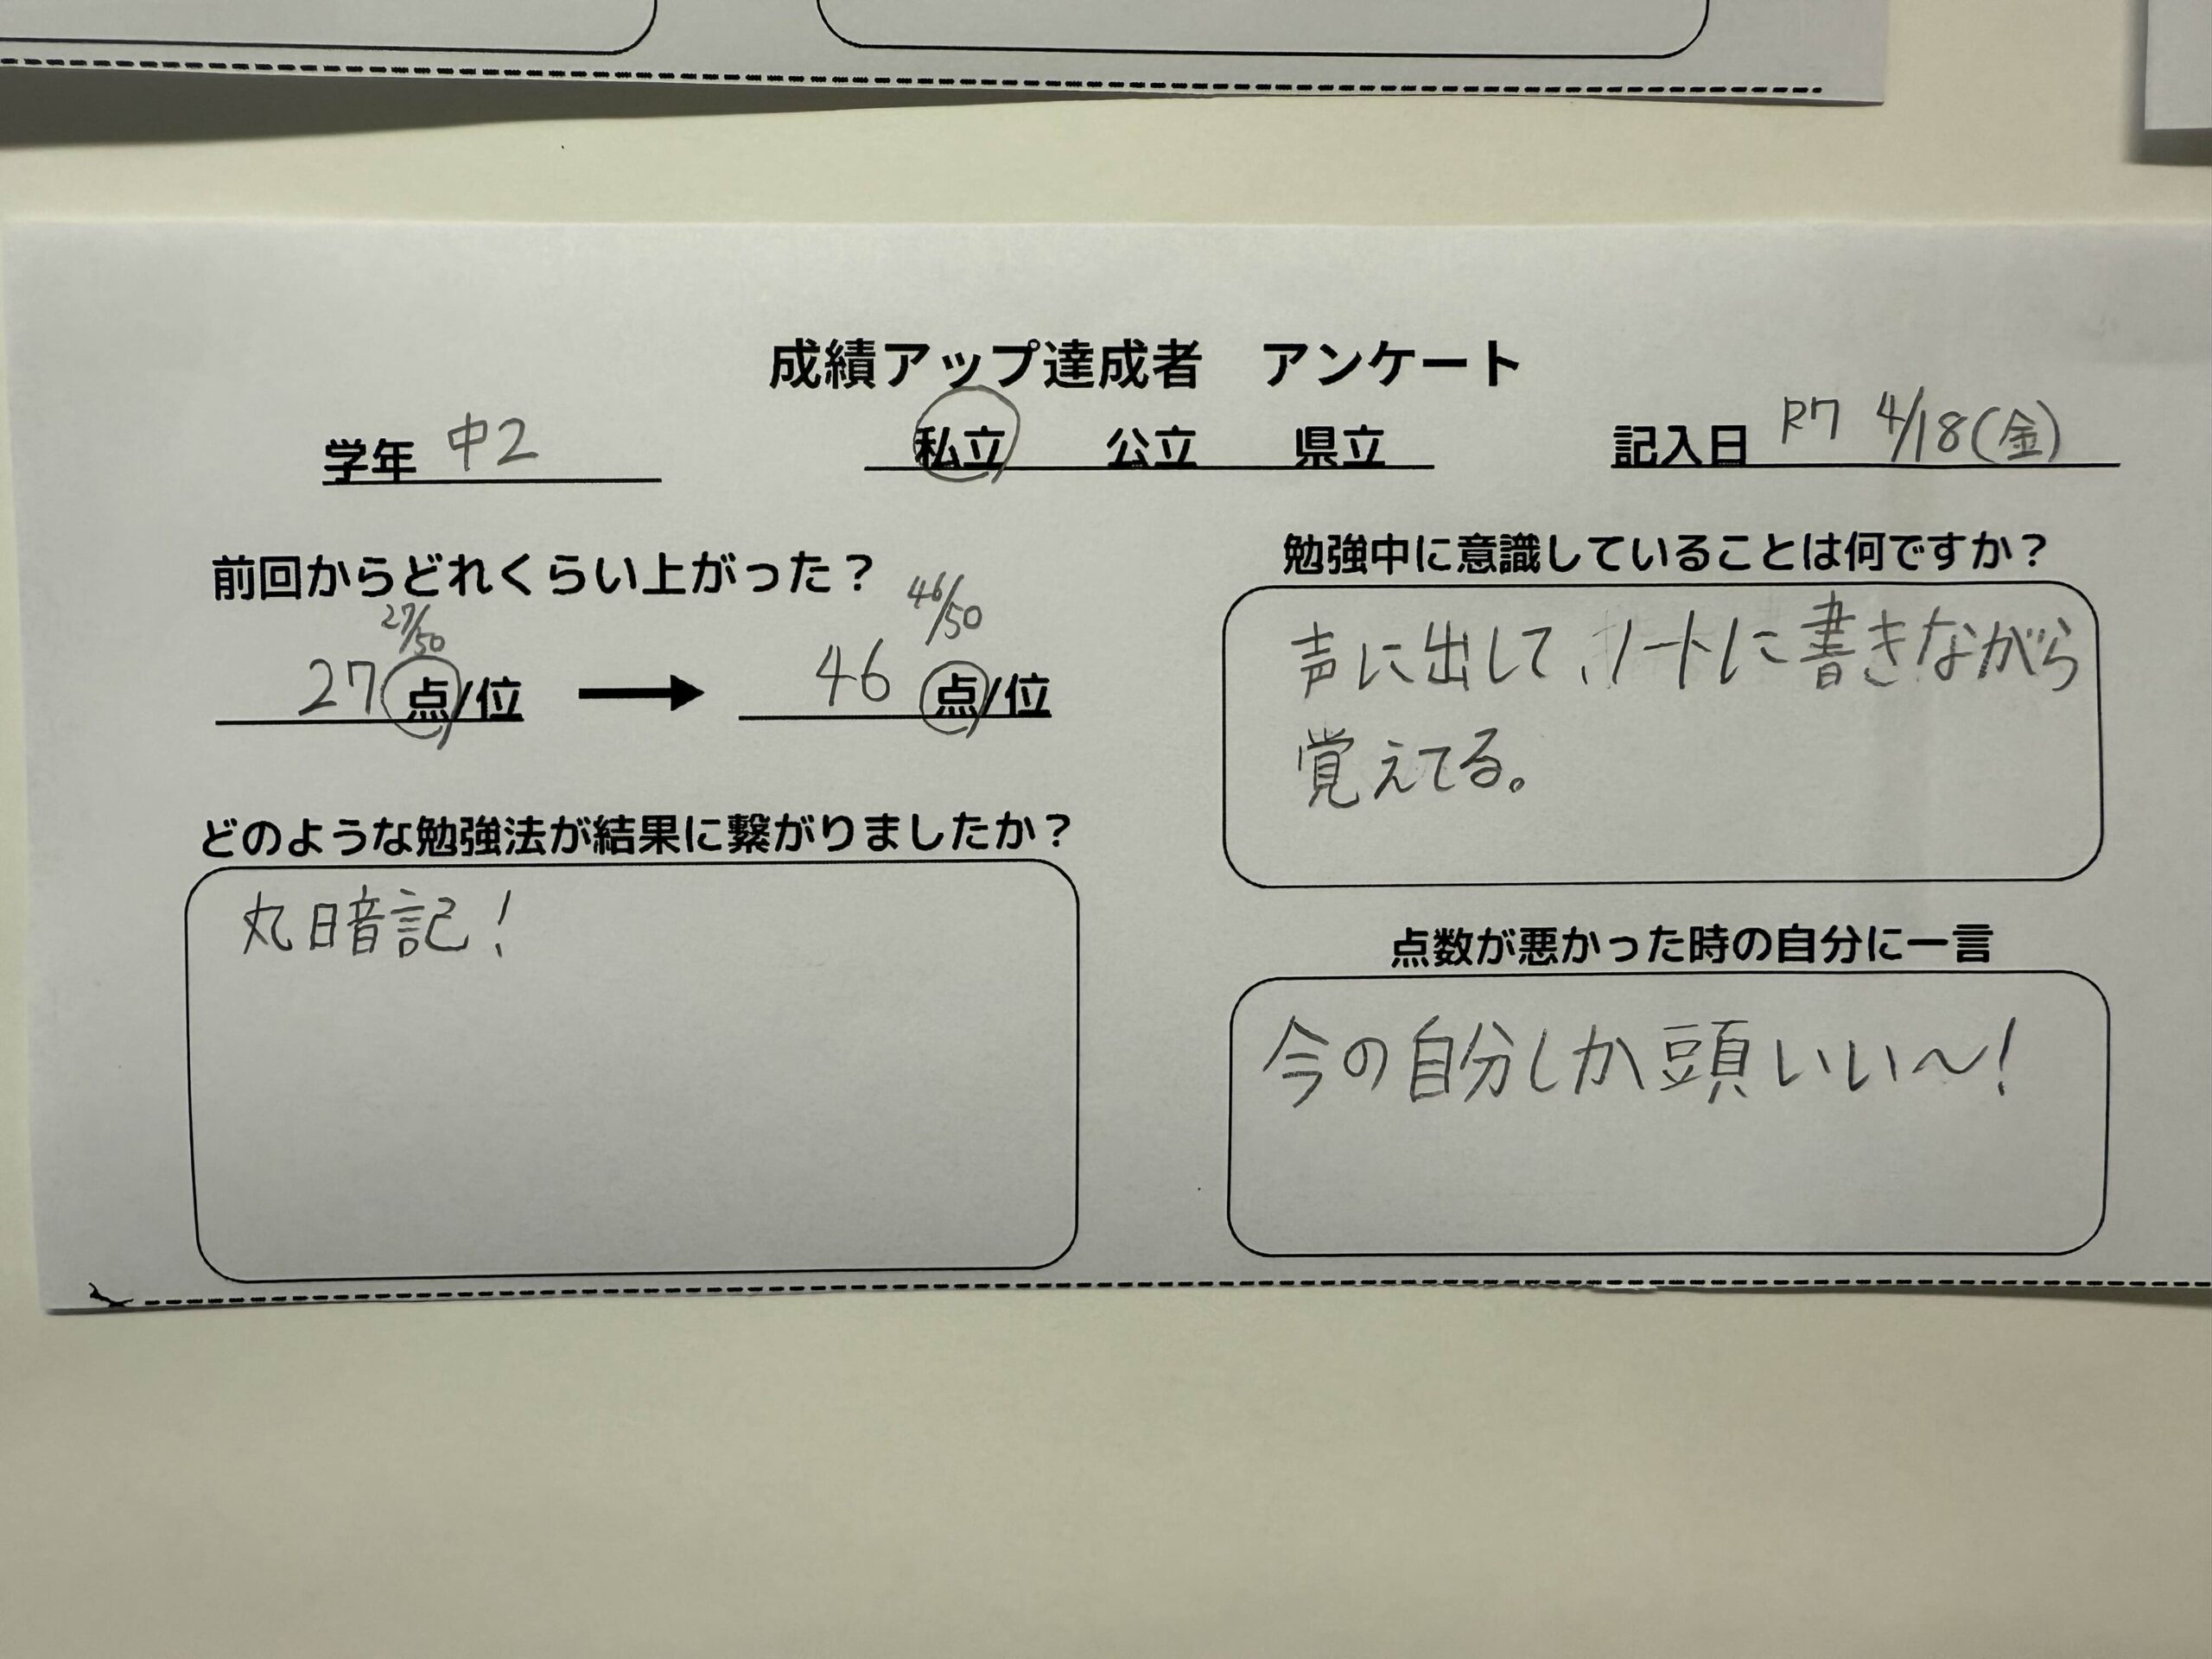 成績アップ達成者 アンケート
学年 中2
私立 公立 県立
記入日 R7 4/18(金)
前回からどれくらい上がった？
27/50
46/50
27 点/位 → 46 点/位
どのような勉強法が結果に繋がりましたか？
丸暗記！
勉強中に意識していることは何ですか？
声に出して、ノートに書きながら
覚えてる。
点数が悪かった時の自分に一言
今の自分しか頭いい〜！